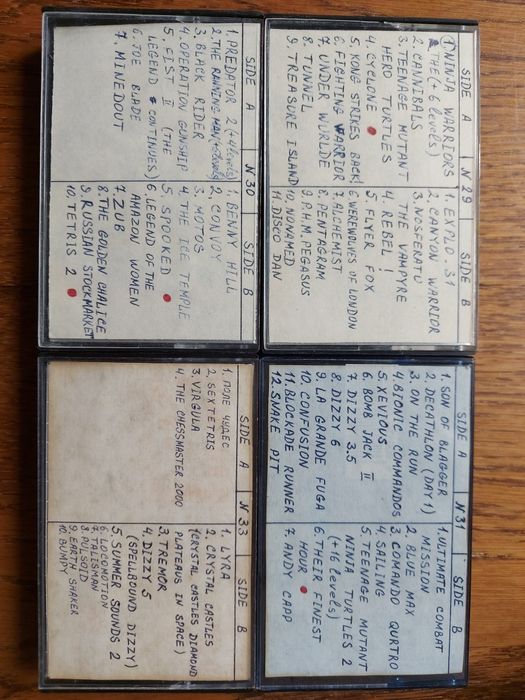 SIDE A
N29
SIDE B
1. NINJA WARRIORS
THE (+6 levels)
2. CANNIBALS
3. TEENAGE MUTANT
HERO TURTLES
4. CYCLONE
5. KONG STRIKES BACK!
6. FIGHTING WARRIOR
7. UNDER WURLDE
8. TUNNEL
9. TREASURE ISLAND
1. EXPLO. 31
2. CANYON WARRIOR
3. NOSFERATU
THE VAMPYRE
4. REBEL!
5. FLYER FOX
6 WEREWOLVES OF LONDON
7. ALCHEMIST
8. PENTAGRAM
9. P.H.M. PEGASUS
10. NONAMED
11. DISCO DAN
SIDE A
N30
SIDE B
1. PREDATOR 2 (+4 levels)
2. THE RUNNING MAN
3. BLACK RIDER
4. OPERATION GUNSHIP
5. FIST II (THE
LEGEND CONTINUES)
6. JOE BLADE
7. MINEDOUT
1. BENNY HILL
2. CONVOY
3. MOTOS
4. THE ICE TEMPLE
5. SPOOKED
6 LEGEND OF THE
AMAZON WOMEN
7. ZUB
8. THE GOLDEN CHALICE
9. RUSSIAN STOCKMARKET
10. TETRIS 2
SIDE A
N31
SIDE B
1. SON OF BLAGGER
2. DECATHLON (DAY 1)
3. ON THE RUN
4. BIONIC COMMANDOS
5. XEVIOUS
6. BOMB JACK II
7. DIZZY 3.5
8. DIZZY 6
9. LA GRANDE FUGA
10. CONFUSION
11. BLOCKADE RUNNER
12. SNAKE PIT
1. ULTIMATE COMBAT
MISSION
2. BLUE MAX
3. COMANDO QURTRO
4. SAILING
5. TEENAGE MUTANT
NINJA TURTLES 2
(+16 levels)
6. THEIR FINEST
HOUR
7. ANDY CAPP
SIDE A
N33
SIDE B
1. ПОЛЕ ЧУДЕС
2. SEXTETRIS
3. VIRGULA
4. THE CHESSMASTER 2000
1. LYRA
2. CRYSTAL CASTLES
(CRYSTAL CASTLES DIAMOND
PLATEAUS IN SPACE)
3. TREMOR
4. DIZZY 5
(SPELLBOUND DIZZY)
5. SUMMER SOUNDS 2
6. LOCOMOTION
7. TALISMAN
8. PULSOID
9. EARTH SHAKER
10. BUMPY